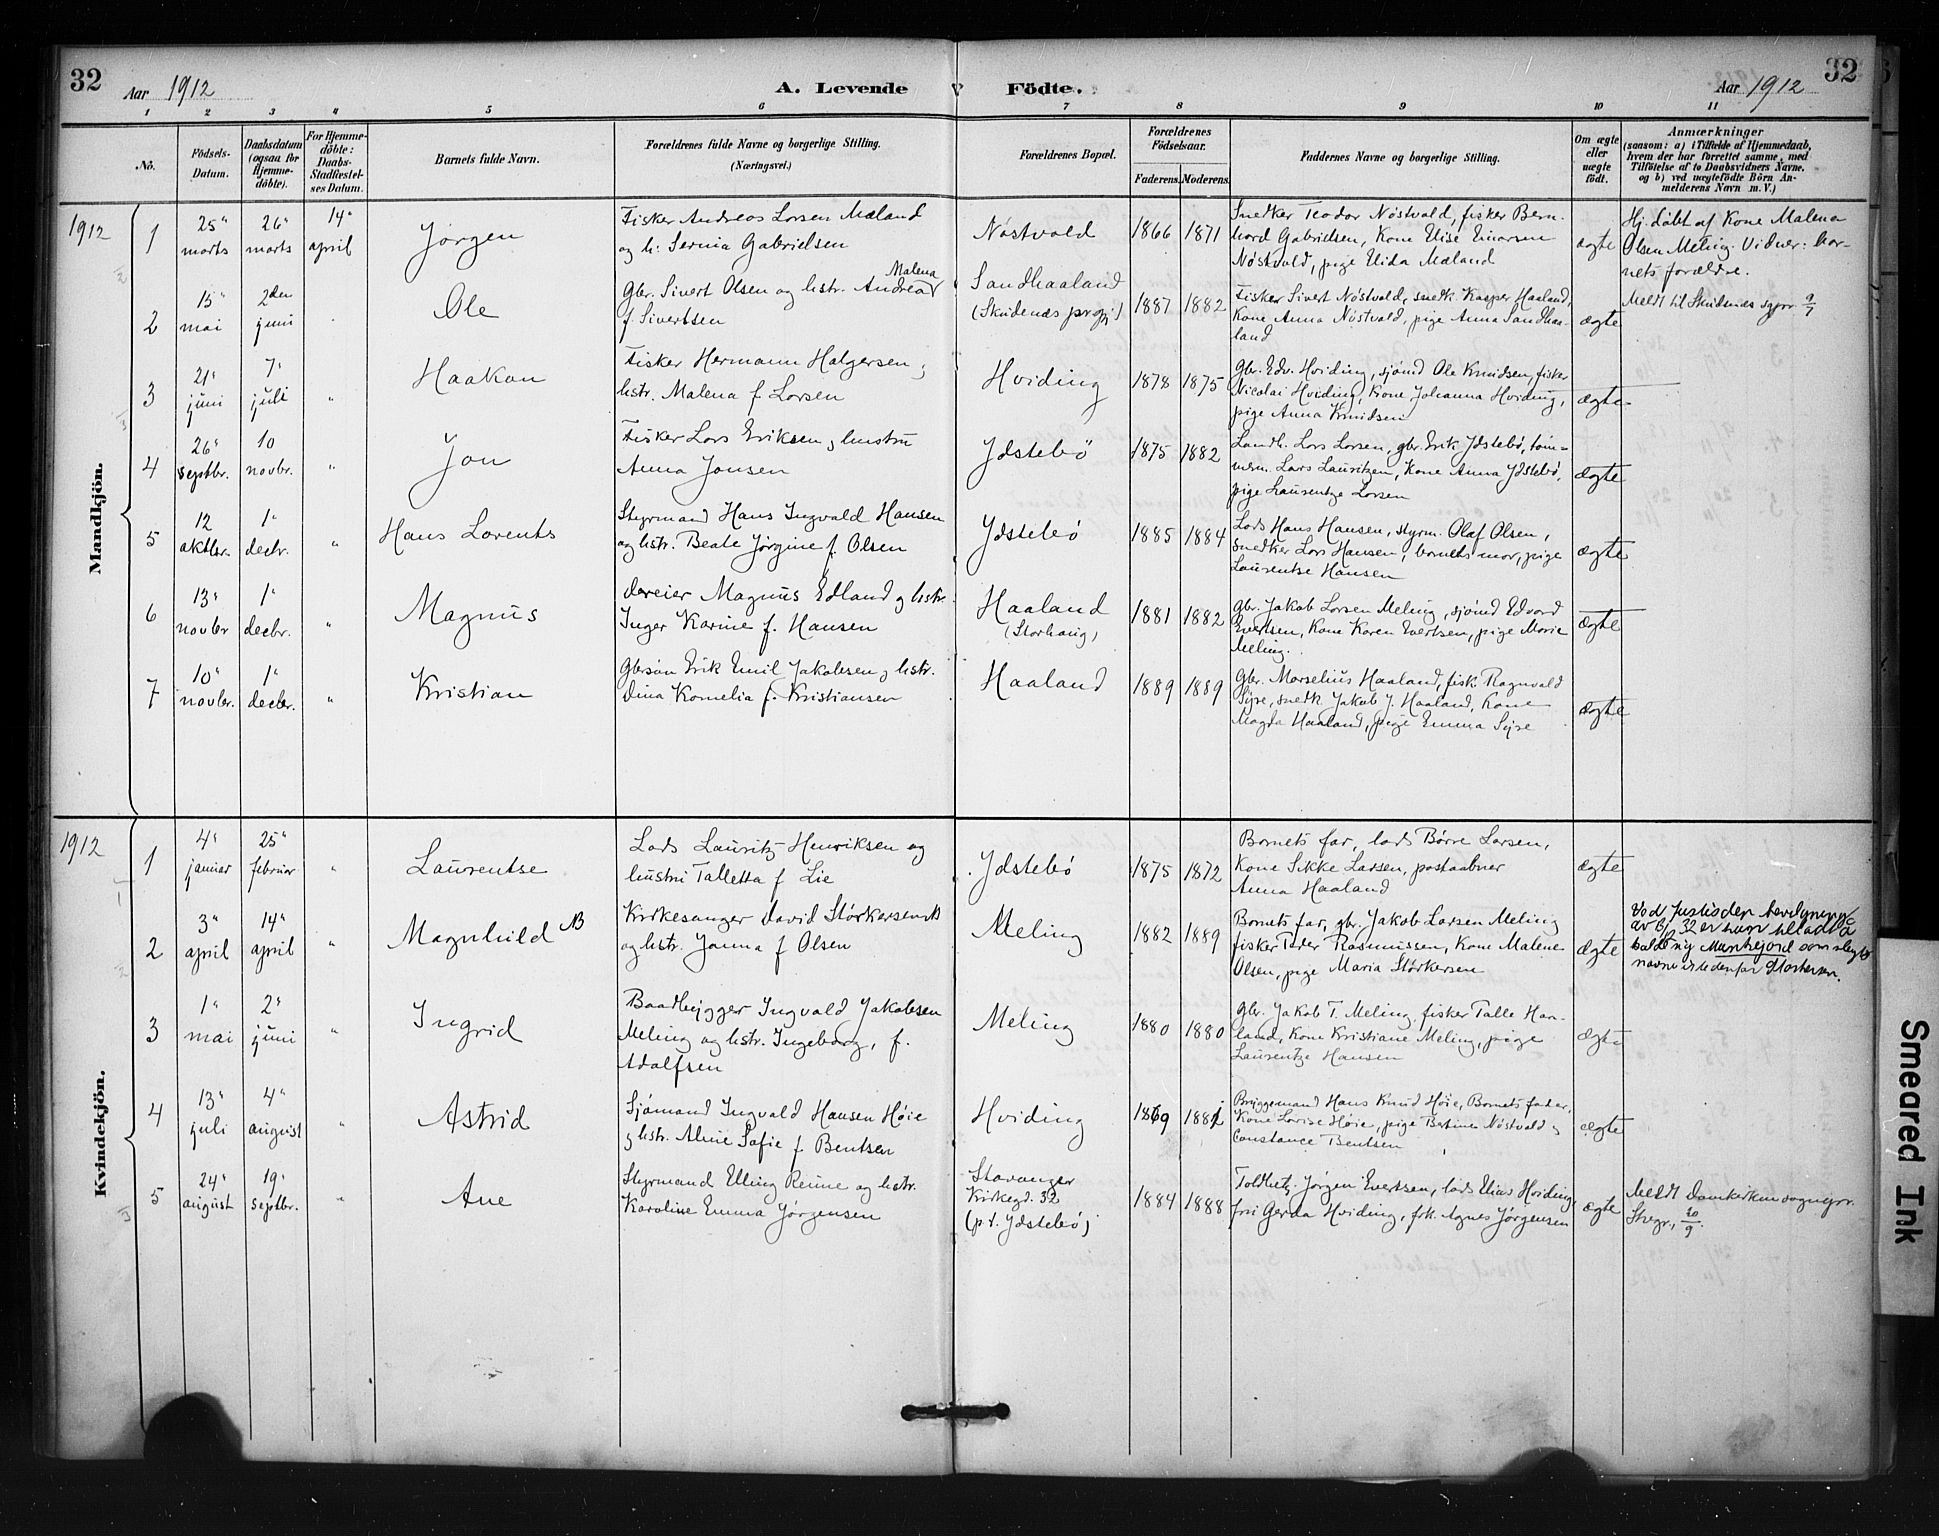 32
Aar 1912
A. Levende Födte.
Aar 1912
32
1 2 3 4 5 6 7 8 9 10 11
No.
Födsels-Datum.
Daabsdatum (ogsaa for Hjemme-döbte).
For Hjemme-döbte: Daabs-Stadfæstel-ses Datum.
Barnets fulde Navn.
Forældrenes fulde Navne og borgerlige Stilling. (Næringsvei.)
Forældrenes Bopæl.
Forældrenes Födselsaar.
Faderens. Moderens.
Faddernes Navne og borgerlige Stilling.
Om ægte eller uægte födt.
Anmærkninger
(saasom: a) i Tilfælde af Hjemmedaab,
hvem der har forrettet samme, med
Tilföielse af to Daabsvidners Navne,
og b) ved uægtefödte Börn An-
melderens Navn m. V.)
Mandkjön.
1912
1
25" marts
26" marts
14" april
Jørgen
Fisker Andreas Larsen Mæland
og h. Serina Gabrielsen
Nøstvold
1866 1871
Snedker Teodor Nøstvold, fisker Bern-
hard Gabrielsen, Kone Elise Einarsen
Nøstvold, pige Elida Mæland
ægte
Hj. døbt af Kone Malena
Olsen Meling. Vidner: bar-
nets forældre.
2
15" mai
2den juni
Ole
Gbr. Sivert Olsen og hstr. Andrea Malena
f. Sivertsen
Sandhaaland
(Skudenæs prgj.)
1887 1882
Fisker Sivert Nøstvold, snedk. Kasper Haaland,
Kone Anna Nøstvold, pige Anna Sandhaa-
land
ægte
Meldt til Skudenæs sgpr. 9/7
3
21" juni
7" juli
"
Haakon
Fisker Hermann Halgersen og
hstr. Malena f. Larsen
Hviding
1878 1875
Gbr. Edv. Hviding, sjømd Ole Knudsen, fisker
Nicolai Hviding, Kone Johanna Hviding,
pige Anna Knudsen
ægte
4
26" septbr.
10 novbr.
"
Jon
Fisker Lars Eriksen og hustru
Anna Jonsen
Ydstebö
1875 1882
Landh. Lars Larsen, gbr. Erik Ydstebö, töm-
merm. Lars Lauritzen, Kone Anna Ydstebö,
pige Laurentze Larsen
ægte
5
12 oktbr.
1" decbr.
"
Hans Lorents
Styrmand Hans Ingvald Hansen
og hstr. Beate Jørgine f. Olsen
Ydstebø
1885 1884
Lods Hans Hansen, styrm. Olaf Olsen,
snedker Lars Hansen, barnets mor, pige
Laurentse Hansen
ægte
6
13" novbr
1" decbr.
"
Magnus
Dreier Magnus Edland og hstr.
Inger Karine f. Hansen
Haaland
(Storhaug)
1881 1882
Gbr. Jakob Larsen Meling, sjömd Edvard
Evertsen, Kone Karen Evertsen, pige Marie
Meling.
ægte
7
10" novbr.
1" decbr.
"
Kristian
Gbrsøn Erik Emil Jakobsen og hstr.
Dina Kornelia f. Kristiansen
Haaland
1889 1889
Gbr. Marselius Haaland, fisk. Ragnvald
Syre, snedk. Jakob J. Haaland, Kone
Magda Haaland, pige Emma Syre
ægte
Kvindekjön.
1912
1
4" januar
25" februar
"
Laurentse
Lods Lauritz Henriksen og
hustru Talletta f. Lie
Ydstebø
1875 1872
Barnets far, lods Børre Larsen,
Kone Sikke Larsen, postaabner
Anna Haaland
ægte
2
3" april
14" april
"
Magnhild NB
Kirkesanger David Störkersen NB
og hstr. Janna f. Olsen
Meling
1882 1889
Barnets far, gbr. Jakob Larsen Meling
fisker Peder Rasmussen, Kone Malene
Olsen, pige Maria Størkersen
ægte
Ved Justisdep. bevilgning
32 er han tilladt å
kalde sig Munkejord som slegts
navn istedenfor Størkersen.
3
1" mai
2" juni
"
Ingrid
Baadbygger Ingvald Jakobsen
Meling og hstr. Ingeborg, f.
Adolfsen
Meling
1880 1880
Gbr. Jakob T. Meling, fisker Talle Haa-
land, Kone Kristiane Meling, pige
Laurentze Hansen
ægte
4
13" juli
4" august
"
Astrid
Sjömand Ingvald Hansen Høie
og hstr. Aline Sofie f. Bentsen
Hviding
1869 1881
Bryggemand Hans Knud Höie, Barnets fader,
Kone Lovise Høie, pige Bertine Nøstvold og
Constance Bentsen
ægte
5
24" august
19" septbr.
"
Ane
Styrmand Elling Renne og hstr.
Karoline Emma Jørgensen
Stavanger
Kirkegd. 32
(p.t. Ydstebø)
1884 1888
Toldbetj. Jørgen Evertsen, lods Elias Hviding,
fru Gerda Hviding, frk. Agnes Jørgensen
ægte
Meldt Domkirkens sognepr.
Stvgr, 20/9.
Smeared Ink